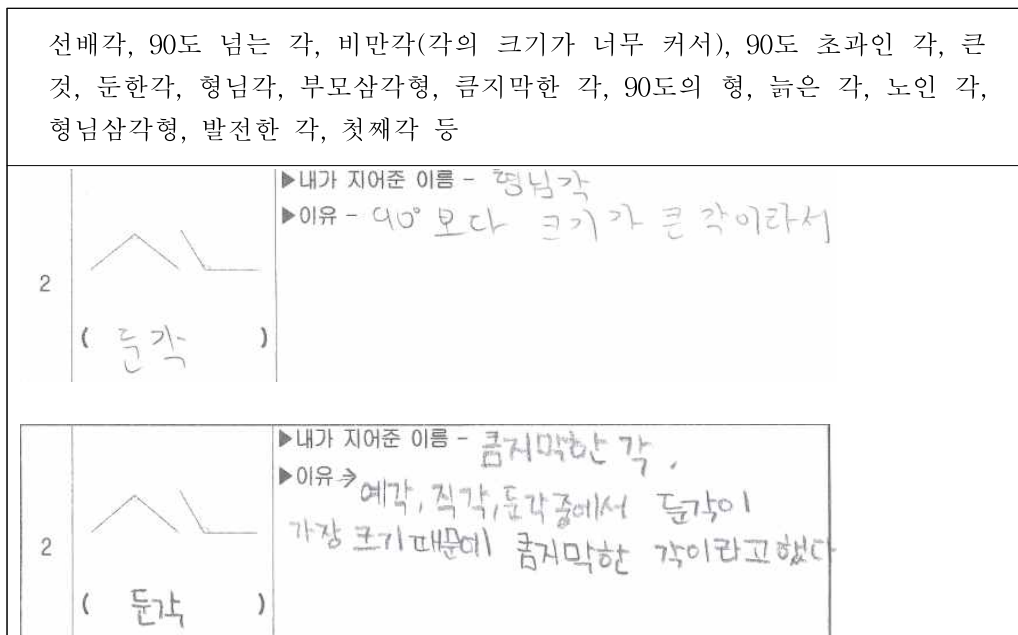 선배각, 90도 넘는 각, 비만각(각의 크기가 너무 커서), 90도 초과인 각, 큰
것, 둔한각, 형님각, 부모삼각형, 큼지막한 각, 90도의 형, 늙은 각, 노인 각,
형님삼각형, 발전한 각, 첫째각 등
▶내가 지어준 이름 - 형님각
▶이유 - 90° 보다 크기가 큰 각이라서
2
( 둔각 )
▶내가 지어준 이름 - 큼지막한 각.
▶이유 → 예각, 직각, 둔각중에서 둔각이
가장 크기때문에 큼지막한 각이라고했다
2
( 둔각 )